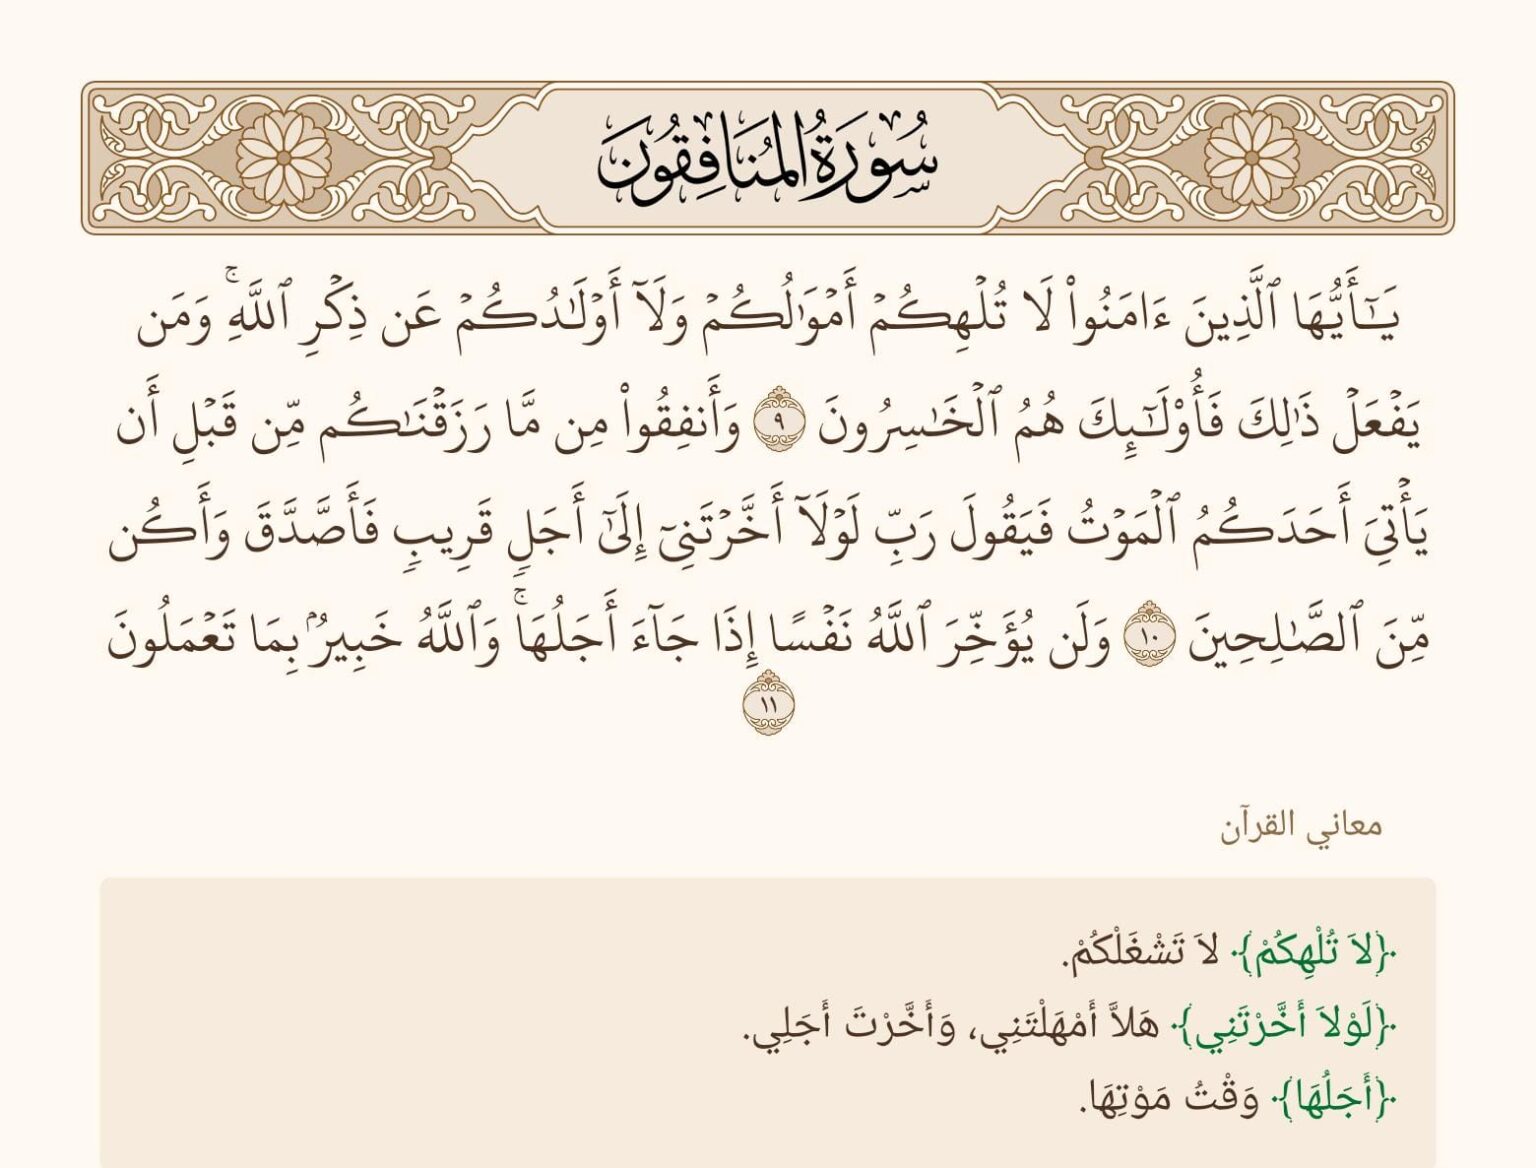 سُورَةُ المُنَافِقُونَ
يَـٰٓأَيُّهَا ٱلَّذِينَ ءَامَنُوا۟ لَا تُلْهِكُمْ أَمْوَٰلُكُمْ وَلَآ أَوْلَـٰدُكُمْ عَن ذِكْرِ ٱللَّهِ ۚ وَمَن
يَفْعَلْ ذَٰلِكَ فَأُو۟لَـٰٓئِكَ هُمُ ٱلْخَـٰسِرُونَ ٩ وَأَنفِقُوا۟ مِن مَّا رَزَقْنَـٰكُم مِّن قَبْلِ أَن
يَأْتِىَ أَحَدَكُمُ ٱلْمَوْتُ فَيَقُولَ رَبِّ لَوْلَآ أَخَّرْتَنِىٓ إِلَىٰٓ أَجَلٍ قَرِيبٍ فَأَصَّدَّقَ وَأَكُن
مِّنَ ٱلصَّـٰلِحِينَ ١٠ وَلَن يُؤَخِّرَ ٱللَّهُ نَفْسًا إِذَا جَآءَ أَجَلُهَا ۚ وَٱللَّهُ خَبِيرٌۢ بِمَا تَعْمَلُونَ
١١
معاني القرآن
﴿لاَ تُلْهِكُمْ﴾ لاَ تَشْغَلْكُمْ.
﴿لَوْلاَ أَخَّرْتَنِي﴾ هَلاَّ أَمْهَلْتَنِي، وَأَخَّرْتَ أَجَلِي.
﴿أَجَلُهَا﴾ وَقْتُ مَوْتِهَا.